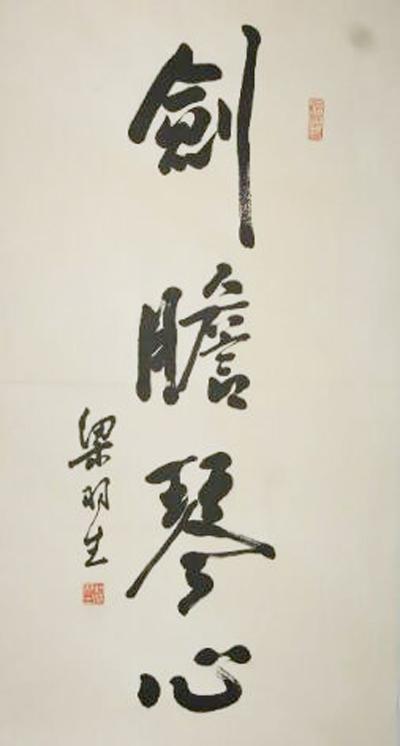 劍膽琴心
梁羽生